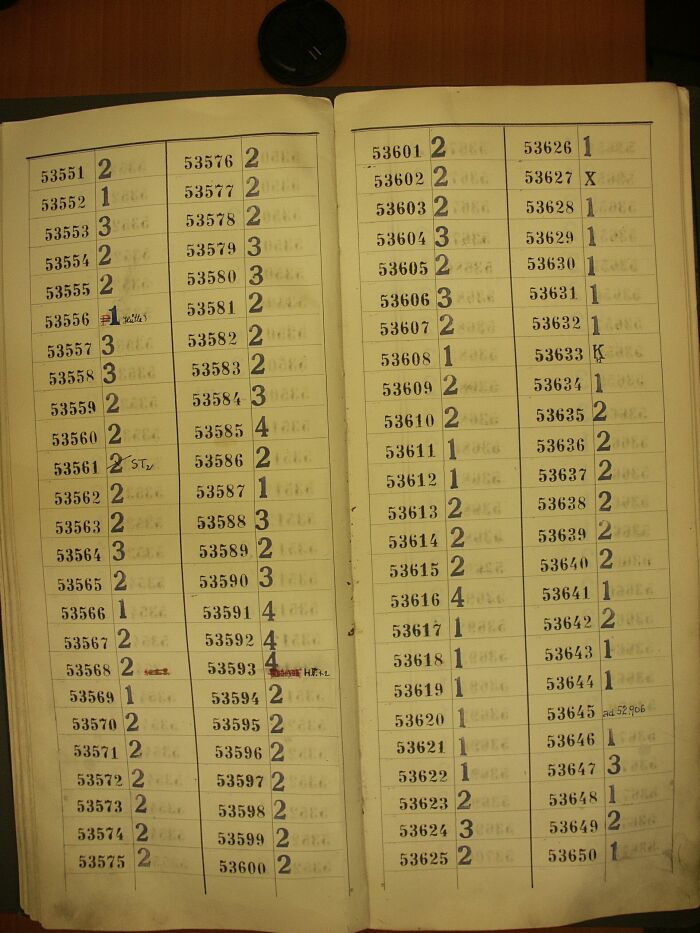 53551 2
53552 1
53553 3
53554 2
53555 2
53556 1
53557 3
53558 3
53559 2
53560 2
53561 2 ST2
53562 2
53563 2
53564 3
53565 2
53566 1
53567 2
53568 2
53569 1
53570 2
53571 2
53572 2
53573 2
53574 2
53575 2
53576 2
53577 2
53578 2
53579 3
53580 3
53581 2
53582 2
53583 2
53584 3
53585 4
53586 2
53587 1
53588 3
53589 2
53590 3
53591 4
53592 4
53593 4
53594 2
53595 2
53596 2
53597 2
53598 2
53599 2
53600 2
53601 2
53602 2
53603 2
53604 3
53605 2
53606 3
53607 2
53608 1
53609 2
53610 2
53611 1
53612 1
53613 2
53614 2
53615 2
53616 4
53617 1
53618 1
53619 1
53620 1
53621 1
53622 1
53623 2
53624 3
53625 2
53626 1
53627 X
53628 1
53629 1
53630 1
53631 1
53632 1
53633 K
53634 1
53635 2
53636 2
53637 2
53638 2
53639 2
53640 2
53641 1
53642 2
53643 1
53644 1
53645 ad 52.906
53646 1
53647 3
53648 1
53649 2
53650 1